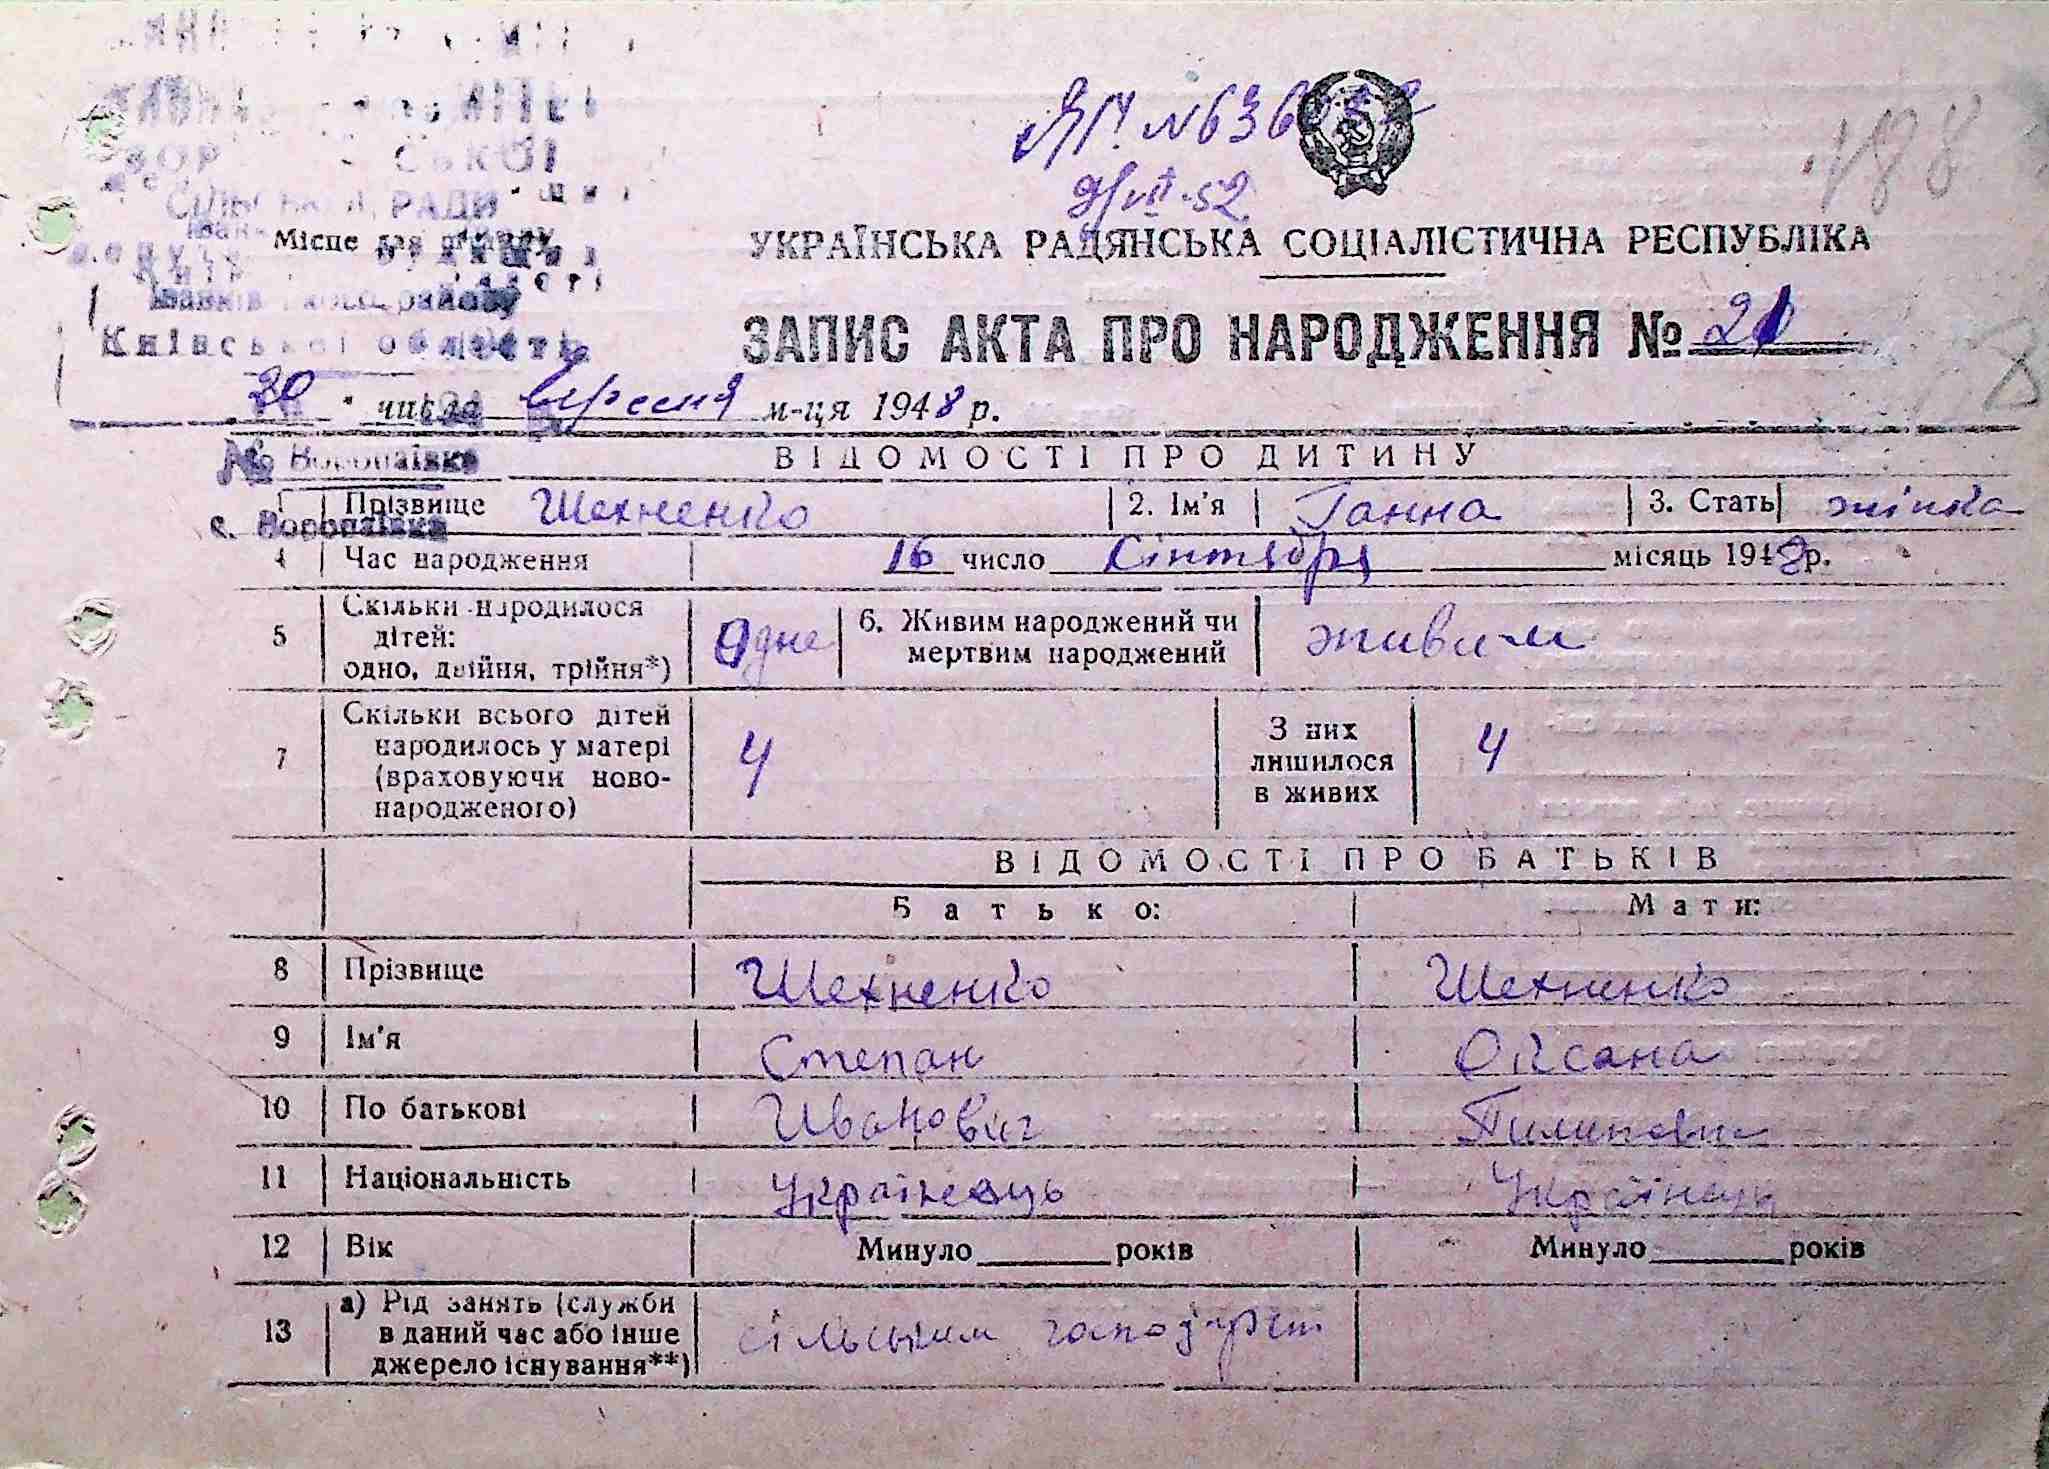 СІЛЬСЬКОЇ РАДИ
Місце для штампу
Іванківського району
Київської області
ЯП № 636
188
УКРАЇНСЬКА РАДЯНСЬКА СОЦІАЛІСТИЧНА РЕСПУБЛІКА
ЗАПИС АКТА ПРО НАРОДЖЕННЯ № 21
30 числа вересня м-ця 1948 р.
№ Воропаївка
ВІДОМОСТІ ПРО ДИТИНУ
1 Прізвище Шехненко 2. Ім'я Ганна 3. Стать жінка
с. Воропаївка
4 Час народження 16 число Сінтября місяць 1948 р.
5 Скільки народилося дітей: одно, двійня, трійня*) Одне 6. Живим народжений чи мертвим народжений живим
7 Скільки всього дітей народилось у матері (враховуючи новонародженого) 4 З них лишилося в живих 4
ВІДОМОСТІ ПРО БАТЬКІВ
Батько: Мати:
8 Прізвище Шехненко Шехненко
9 Ім'я Степан Оксана
10 По батькові Иванович Пилиповна
11 Національність Українець Українець
12 Вік Минуло ______ років Минуло ______ років
13 а) Рід занять (служби в даний час або інше джерело існування**) сільським